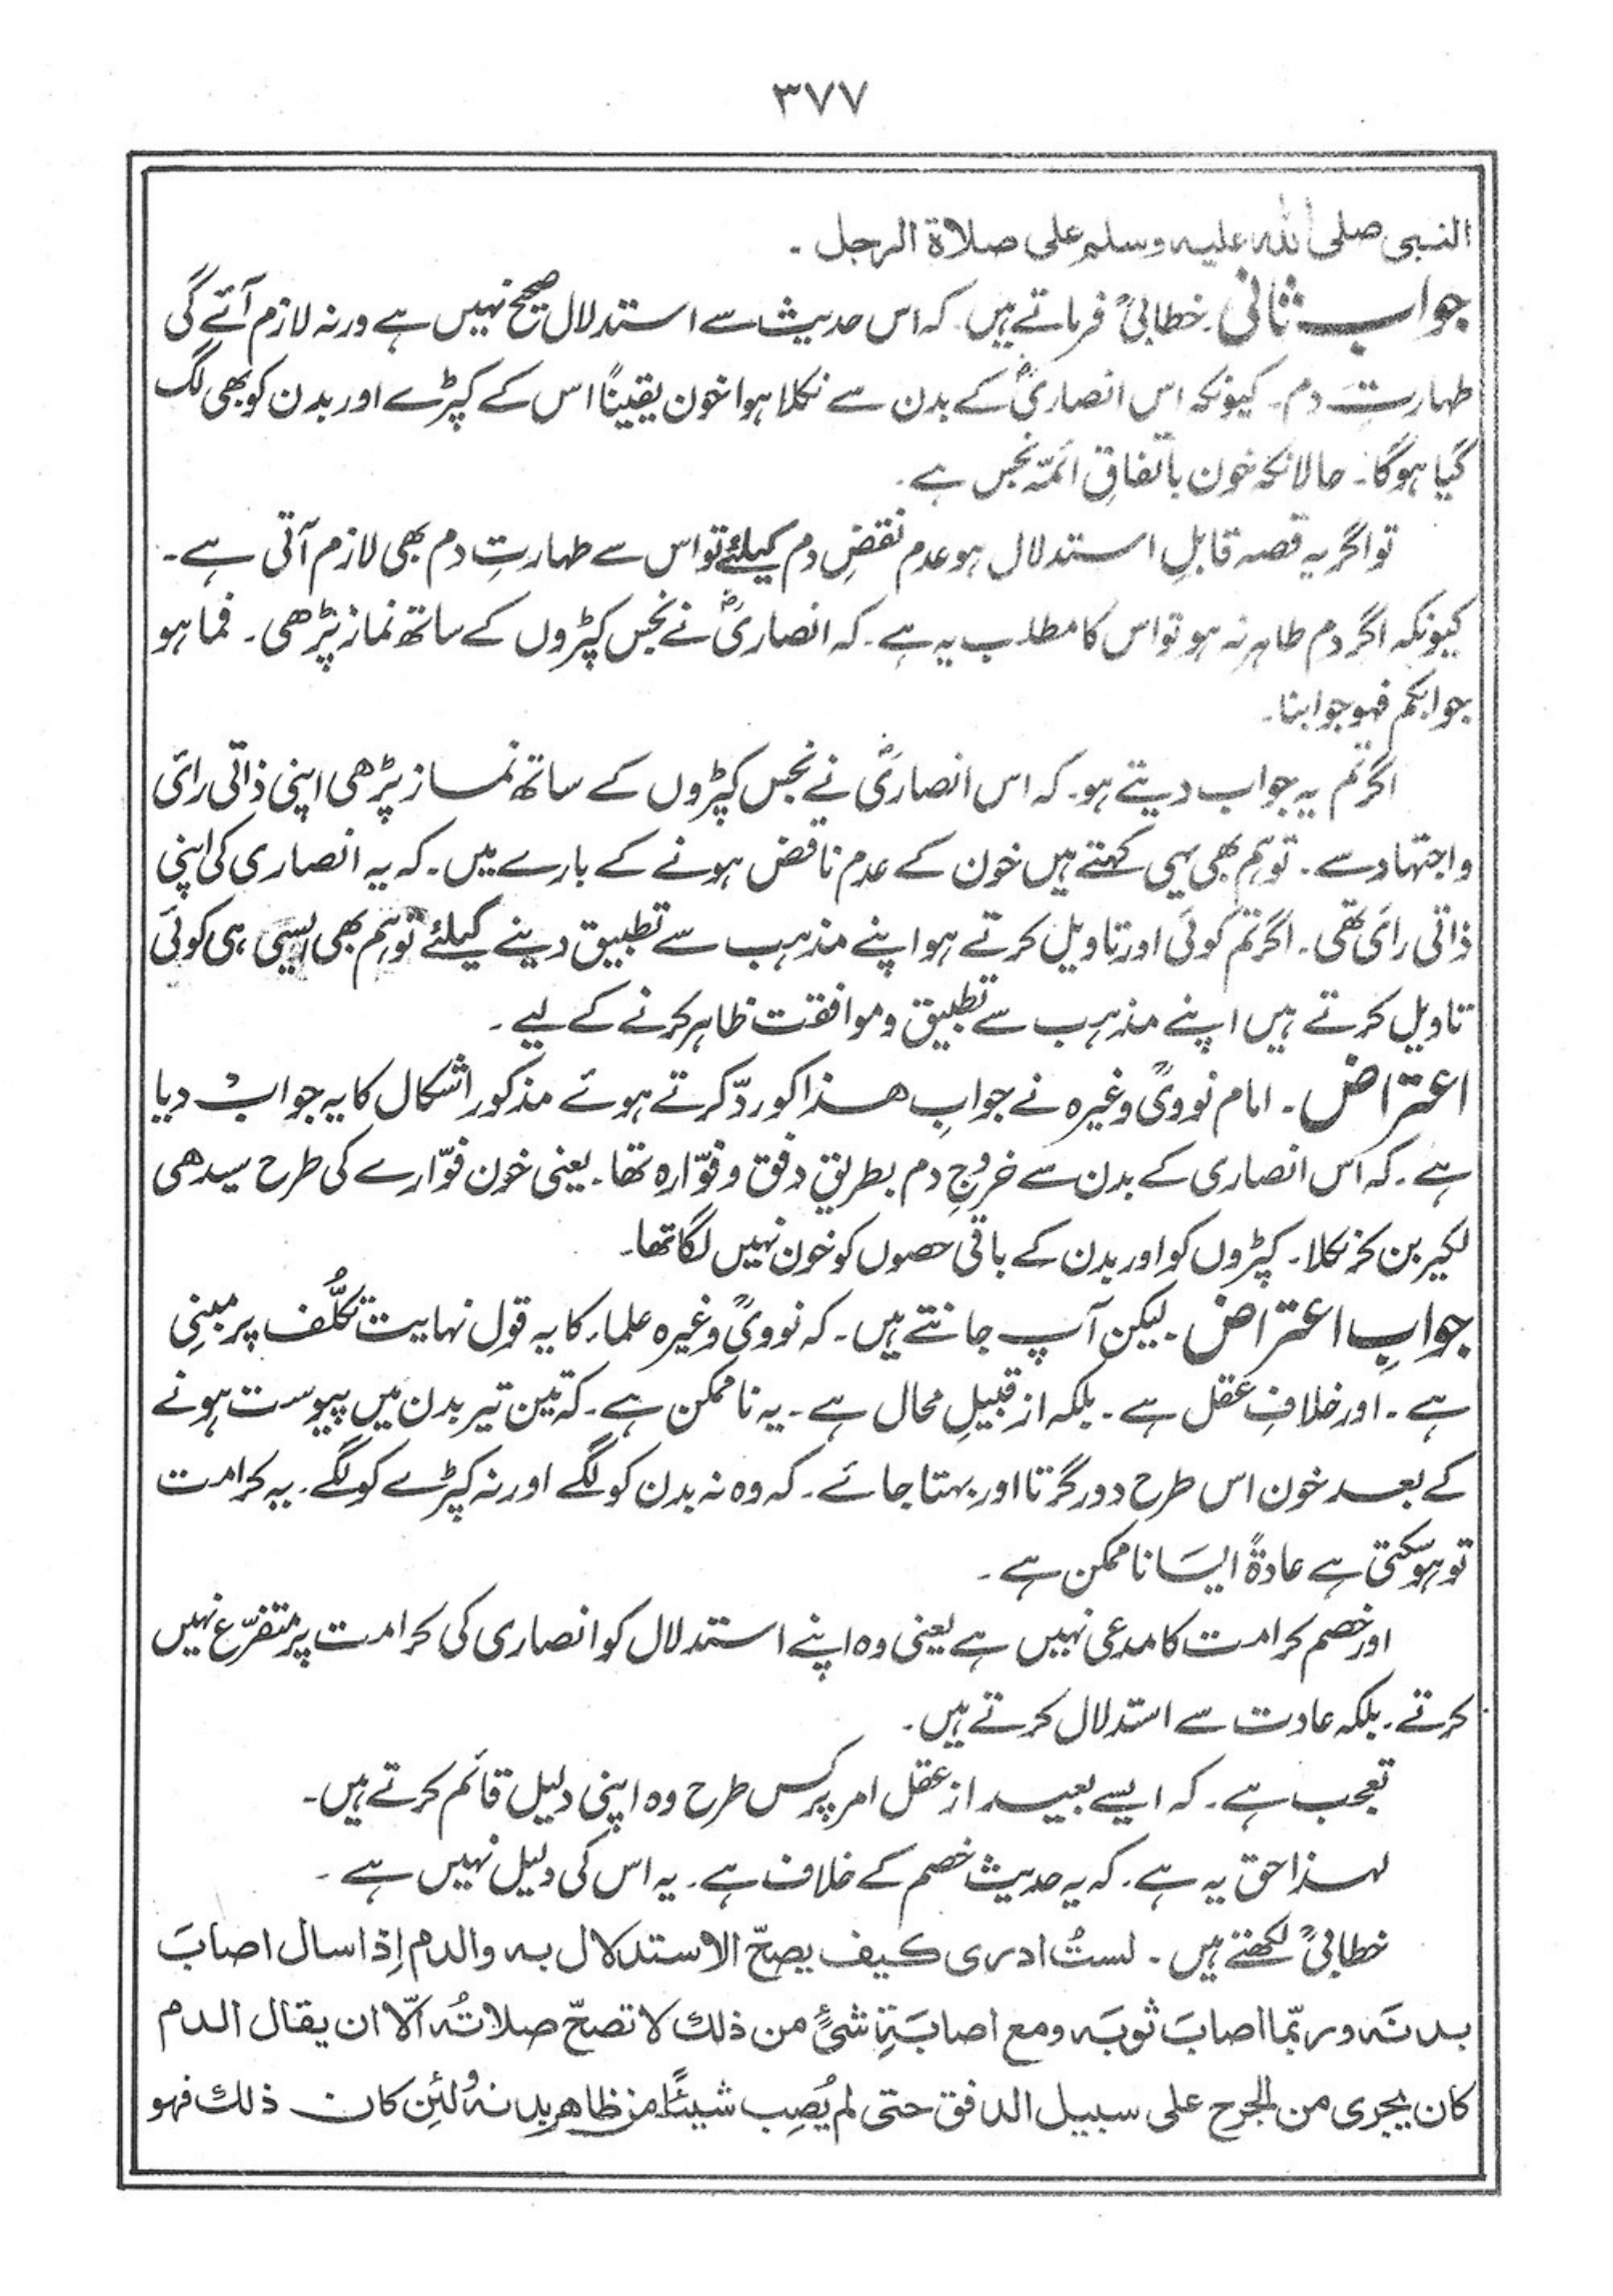 ۳۷۷
النبی صلی اللہ علیہ وسلم علی صلاۃ الرجل ۔
جواب ثانی ۔ خطابیؒ فرماتے ہیں ۔ کہ اس حدیث سے استدلال صحیح نہیں ہے ورنہ لازم آئے گی
طہارتِ دم ۔ کیونکہ اس انصاریؓ کے بدن سے نکلا ہوا خون یقیناً اس کے کپڑے اور بدن کو بھی لگ
گیا ہوگا ۔ حالانکہ خون باتفاقِ ائمّہ نجس ہے ۔
تو اگر یہ قصہ قابلِ استدلال ہو عدم نقضِ دم کیلئے تو اس سے طہارتِ دم بھی لازم آتی ہے ۔
کیونکہ اگر دم طاہر نہ ہو تو اس کا مطلب یہ ہے ۔ کہ انصاریؓ نے نجس کپڑوں کے ساتھ نماز پڑھی ۔ فما ہو
جوابکم فہو جوابنا ۔
اگر تم یہ جواب دیتے ہو ۔ کہ اس انصاریؓ نے نجس کپڑوں کے ساتھ نماز پڑھی اپنی ذاتی رائی
و اجتہاد سے ۔ تو ہم بھی یہی کہتے ہیں خون کے عدم ناقض ہونے کے بارے میں ۔ کہ یہ انصاری کی اپنی
ذاتی رائی تھی ۔ اگر تم کوئی اور تاویل کرتے ہو اپنے مذہب سے تطبیق دینے کیلئے تو ہم بھی ایسی ہی کوئی
تاویل کرتے ہیں اپنے مذہب سے تطبیق و موافقت ظاہر کرنے کے لیے ۔
اعتراض ۔ امام نوویؒ وغیرہ نے جوابِ ھذا کو ردّ کرتے ہوئے مذکور اشکال کا یہ جواب دیا
ہے ۔ کہ اس انصاری کے بدن سے خروجِ دم بطریقِ دفق و فوّارہ تھا ۔ یعنی خون فوّارے کی طرح سیدھی
لکیر بن کر نکلا ۔ کپڑوں کو اور بدن کے باقی حصوں کو خون نہیں لگا تھا ۔
جوابِ اعتراض ۔ لیکن آپ جانتے ہیں ۔ کہ نوویؒ وغیرہ علماء کا یہ قول نہایت تکلُّف پر مبنِی
ہے ۔ اور خلافِ عقل ہے ۔ بلکہ از قبیلِ محال ہے ۔ یہ ناممکن ہے ۔ کہ تین تیر بدن میں پیوست ہونے
کے بعد خون اس طرح دور گرتا اور بہتا جائے ۔ کہ وہ نہ بدن کو لگے اور نہ کپڑے کو لگے ۔ یہ کرامت
تو ہوسکتی ہے عادۃً ایسا ناممکن ہے ۔
اور خصم کرامت کا مدعی نہیں ہے یعنی وہ اپنے استدلال کو انصاری کی کرامت پر متفرّع نہیں
کرتے ۔ بلکہ عادت سے استدلال کرتے ہیں ۔
تعجب ہے ۔ کہ ایسے بعید از عقل امر پر کس طرح وہ اپنی دلیل قائم کرتے ہیں ۔
لہذا حق یہ ہے ۔ کہ یہ حدیث خصم کے خلاف ہے ۔ یہ اس کی دلیل نہیں ہے ۔
خطابیؒ لکھتے ہیں ۔ لستُ ادری کیف یصحّ الاستدلال بہ والدم إذا سال اصابَ
بدنَہ وربّما اصابَ ثوبَہ ومع اصابَۃِ شیٍٔ من ذلك لا تصحّ صلاتُہ الّا ان یقال الدم
کان یجری من الجرح علی سبیل الدفق حتی لم یُصِب شیئًا من ظاھر بدنہ ولئِن کان ذلك فہو